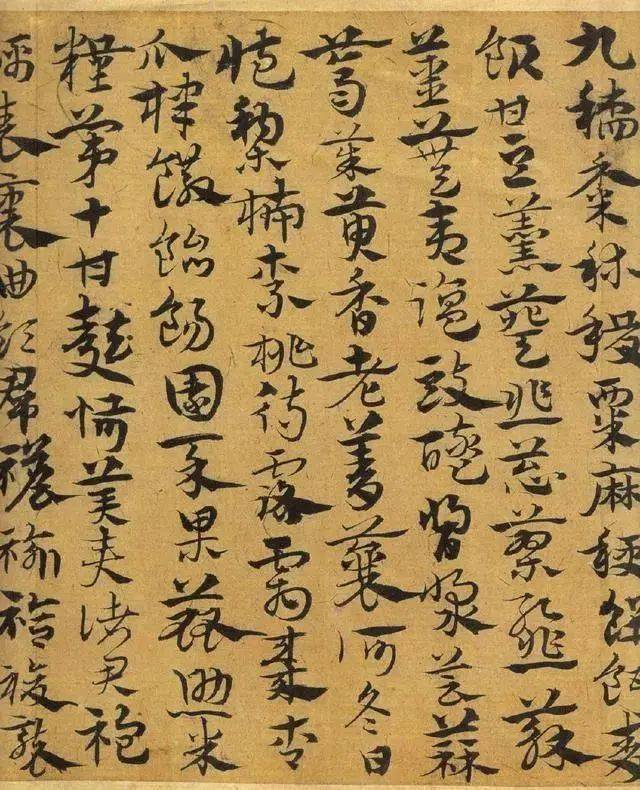 九稻黍秫稷粟麻粳餅餌麥
飯甘豆羹葵韭蔥蓼韰蘇
薑蕪荑鹽豉醯醬漿芸蒜
茱萸香老菁蘘河冬日
梨柿柰桃待露霜棗杏
瓜棣饊飴餳園菜果蓏助米
糧第十甘麩恬美奏諸君袍
襦表裏曲領帬襜褕袷複